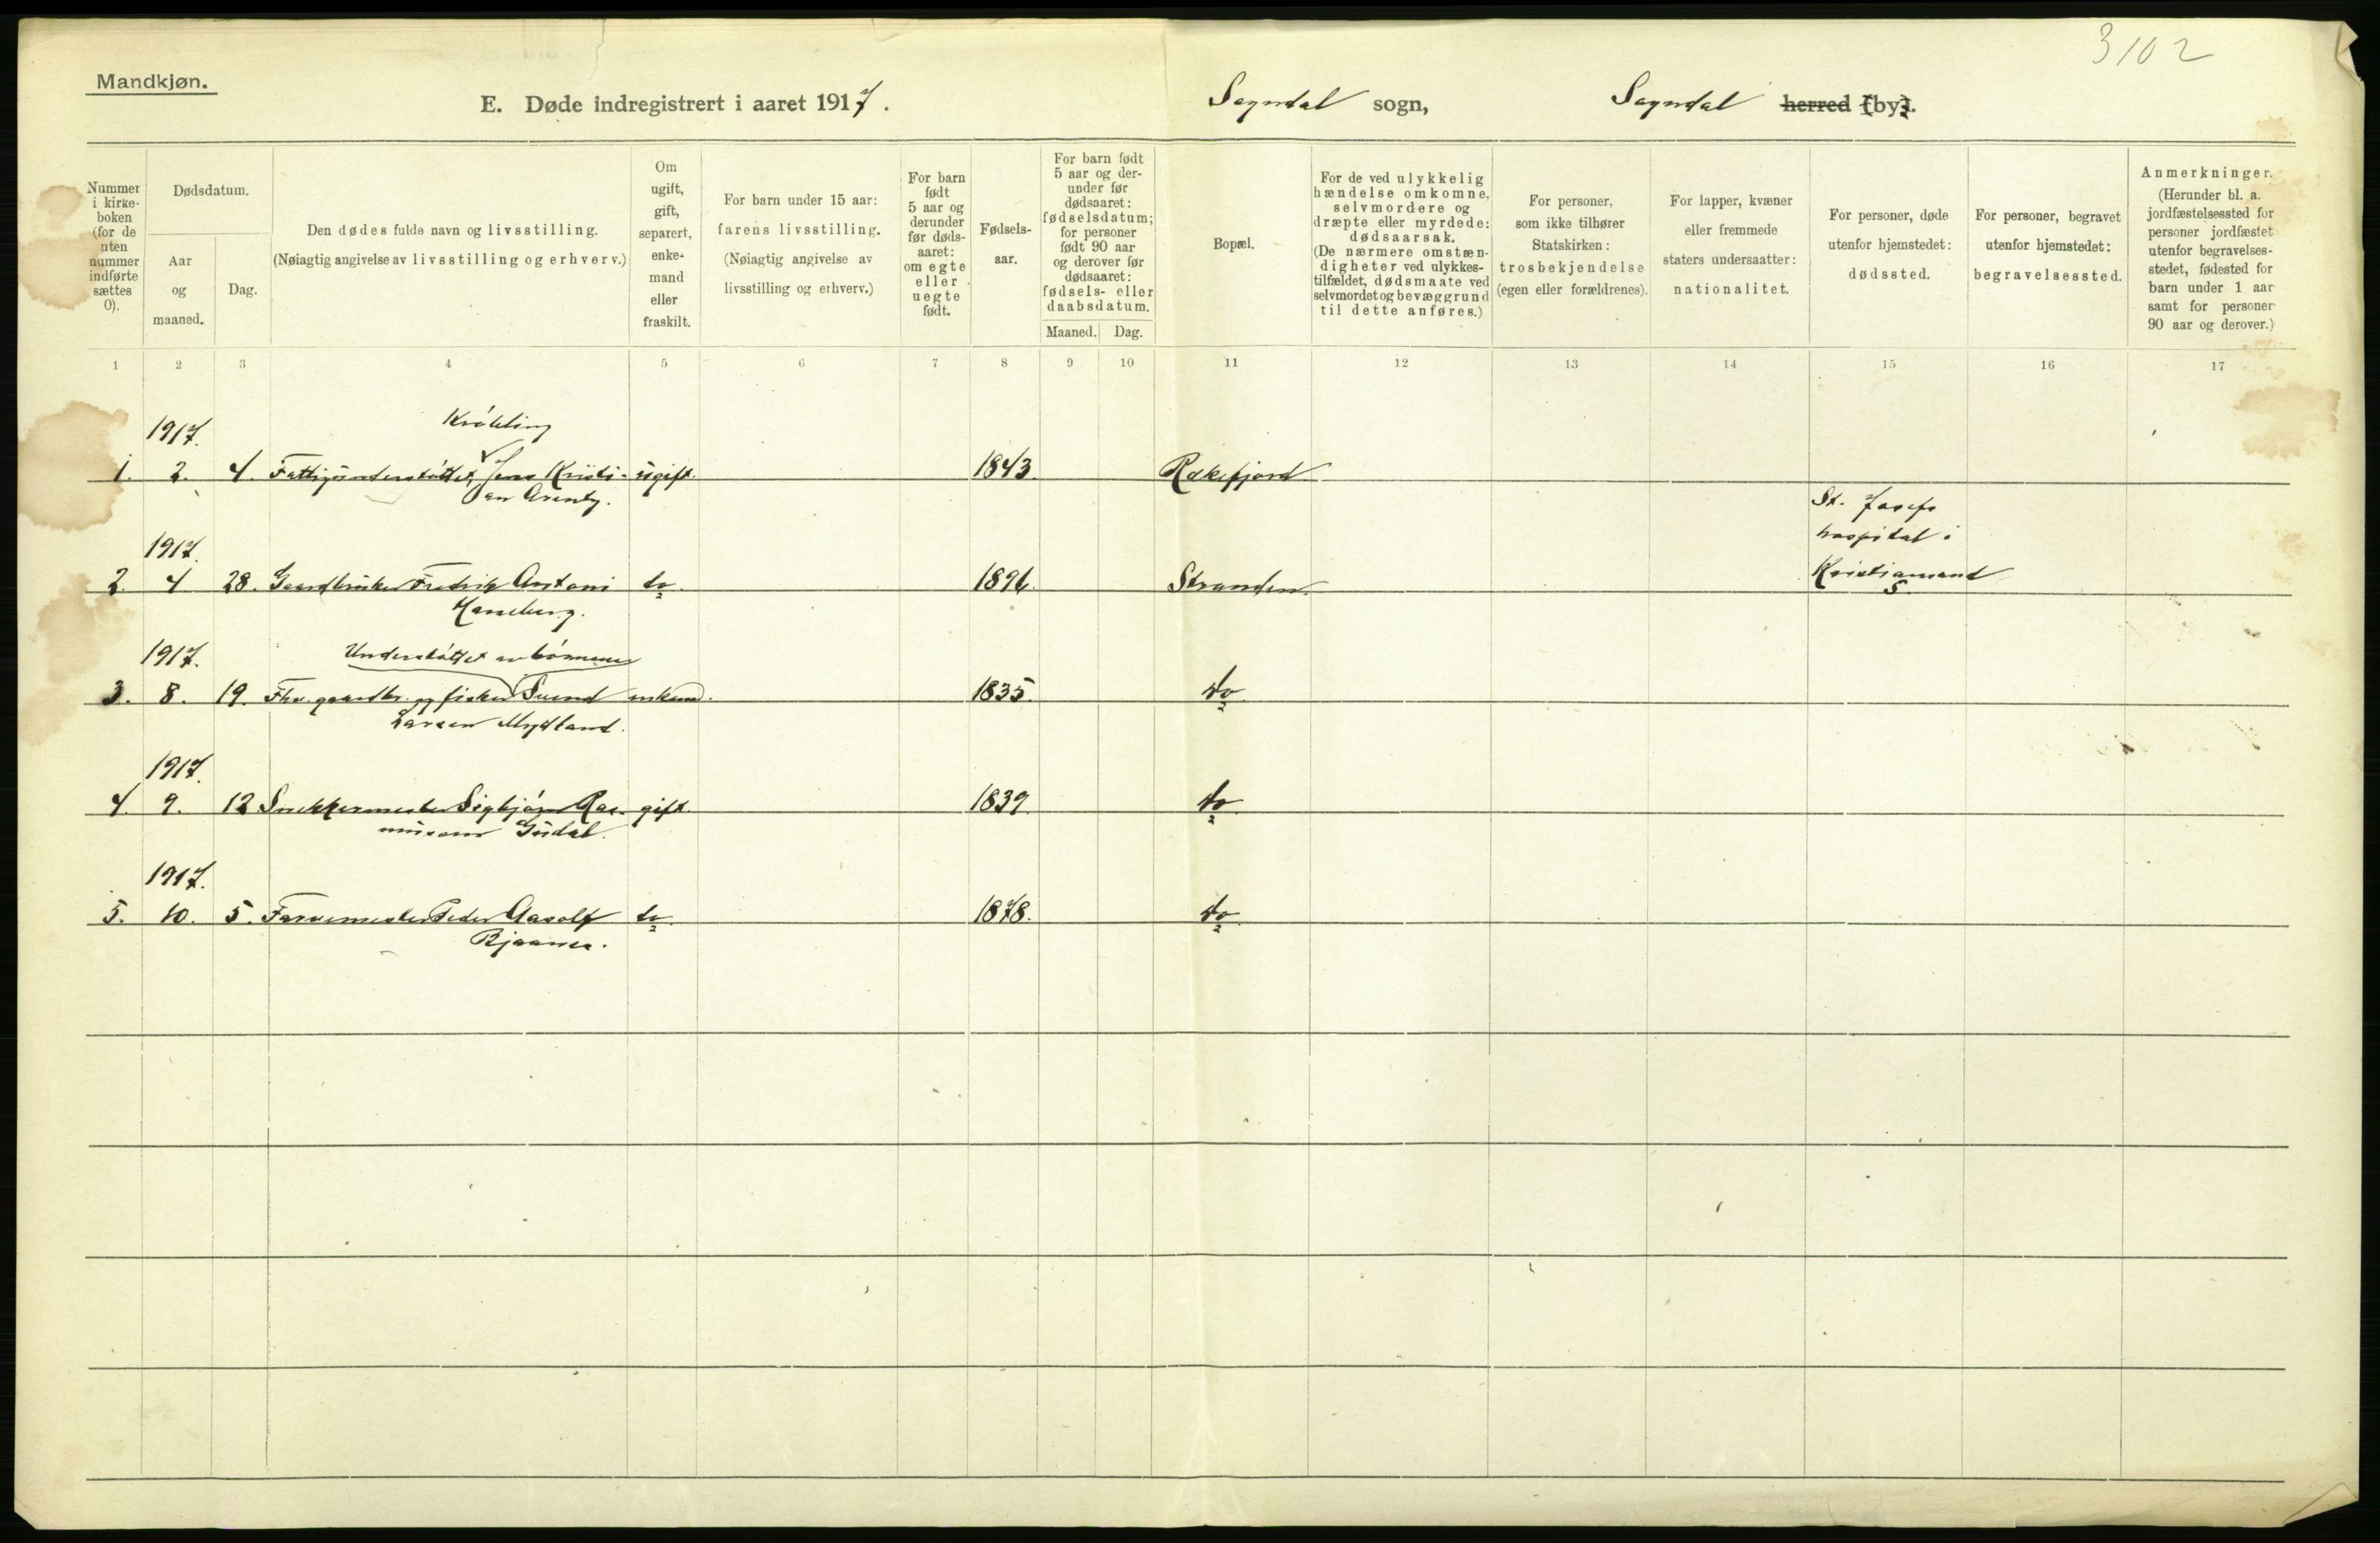 3102
Mandkjøn.
E. Døde indregistrert i aaret 1917.
Sogndal sogn,
Sogndal herred (by).
Nummer
i kirke-
boken
(for de
uten
nummer
indførte
sættes
0).
Dødsdatum.
Aar
og
maaned.
Dag.
Den dødes fulde navn og livsstilling.
(Nøiagtig angivelse av livsstilling og erhverv.)
Om
ugift,
gift,
separert,
enke-
mand
eller
fraskilt.
For barn under 15 aar:
farens livsstilling.
(Nøiagtig angivelse av
livsstilling og erhverv.)
For barn
født
5 aar og
derunder
før døds-
aaret:
om egte
eller
uegte
født.
Fødsels-
aar.
For barn født
5 aar og der-
under før
dødsaaret:
fødselsdatum;
for personer
født 90 aar
og derover før
dødsaaret:
fødsels- eller
daabsdatum.
Maaned. Dag.
Bopæl.
For de ved ulykkelig
hændelse omkomne,
selvmordere og
dræpte eller myrdede:
dødsaarsak.
(De nærmere omstæn-
digheter ved ulykkes-
tilfældet, dødsmaate ved
selvmordet og bevæggrund
til dette anføres.)
For personer,
som ikke tilhører
Statskirken:
trosbekjendelse
(egen eller forældrenes).
For lapper, kvæner
eller fremmede
staters undersaatter:
nationalitet.
For personer, døde
utenfor hjemstedet:
dødssted.
For personer, begravet
utenfor hjemstedet:
begravelsessted.
Anmerkninger.
(Herunder bl. a.
jordfæstelsessted for
personer jordfæstet
utenfor begravelses-
stedet, fødested for
barn under 1 aar
samt for personer
90 aar og derover.)
1 2 3 4 5 6 7 8 9 10 11 12 13 14 15 16 17
1917. Krøbling
1. 2. 4. Fattigunderstøttet, Jens Kristi- ugift. 1843. Rækefjord
an Arenty.
St. Josefs
hospital i
1917.
2. 4 28. Gaardbruker Fredrik Antoni do. 1896. Stranden. Kristiansand
S.
Haneberg.
1917. Understøttet av børnene
3. 8. 19. Fhv. gaardbr. og fisker Svend enkem. 1835. do
Larsen Mydland.
1917.
4. 9. 12 Snekkermester Sigbjørn Ras- gift. 1839. do
mussen Gudal.
1917.
5. 10. 5. Farvemester Peder Aasolf do. 1878. do
Bjaanes.